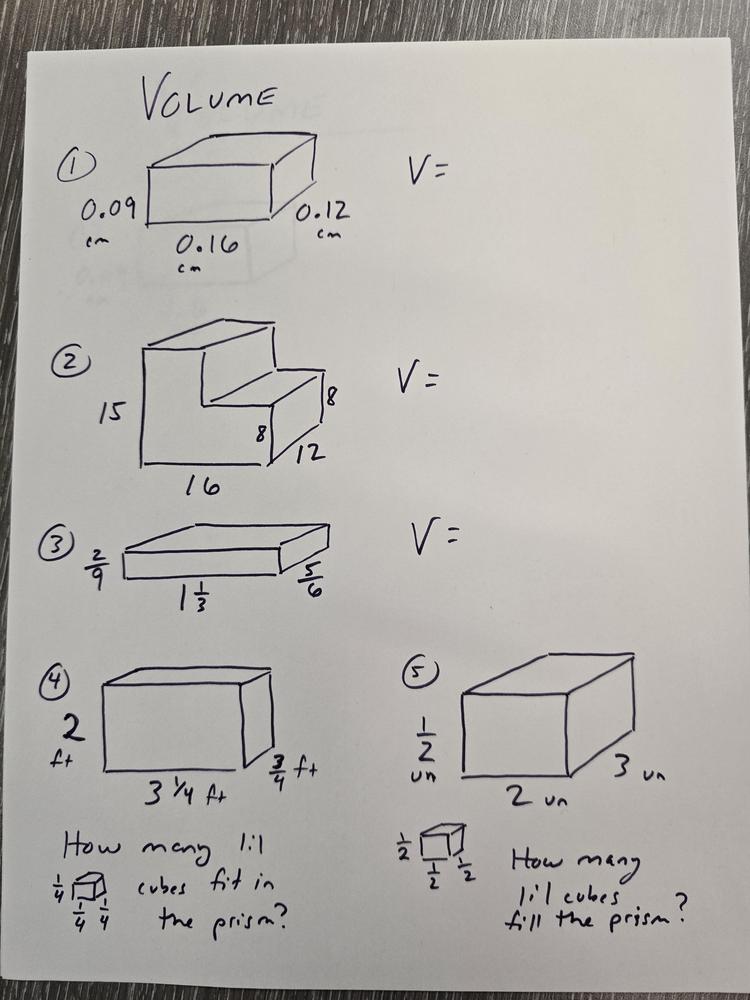 VOLUME
① V=
0.09 cm
0.16 cm
0.12 cm
② V=
15
8
8
12
16
③ V=
2/9
1 1/3
5/6
④
2 ft
3 1/4 ft
3/4 ft
How many lil
1/4 1/4 1/4 cubes fit in
the prism?
⑤
1/2 un
2 un
3 un
1/2 1/2 1/2
How many
li'l cubes
fill the prism?